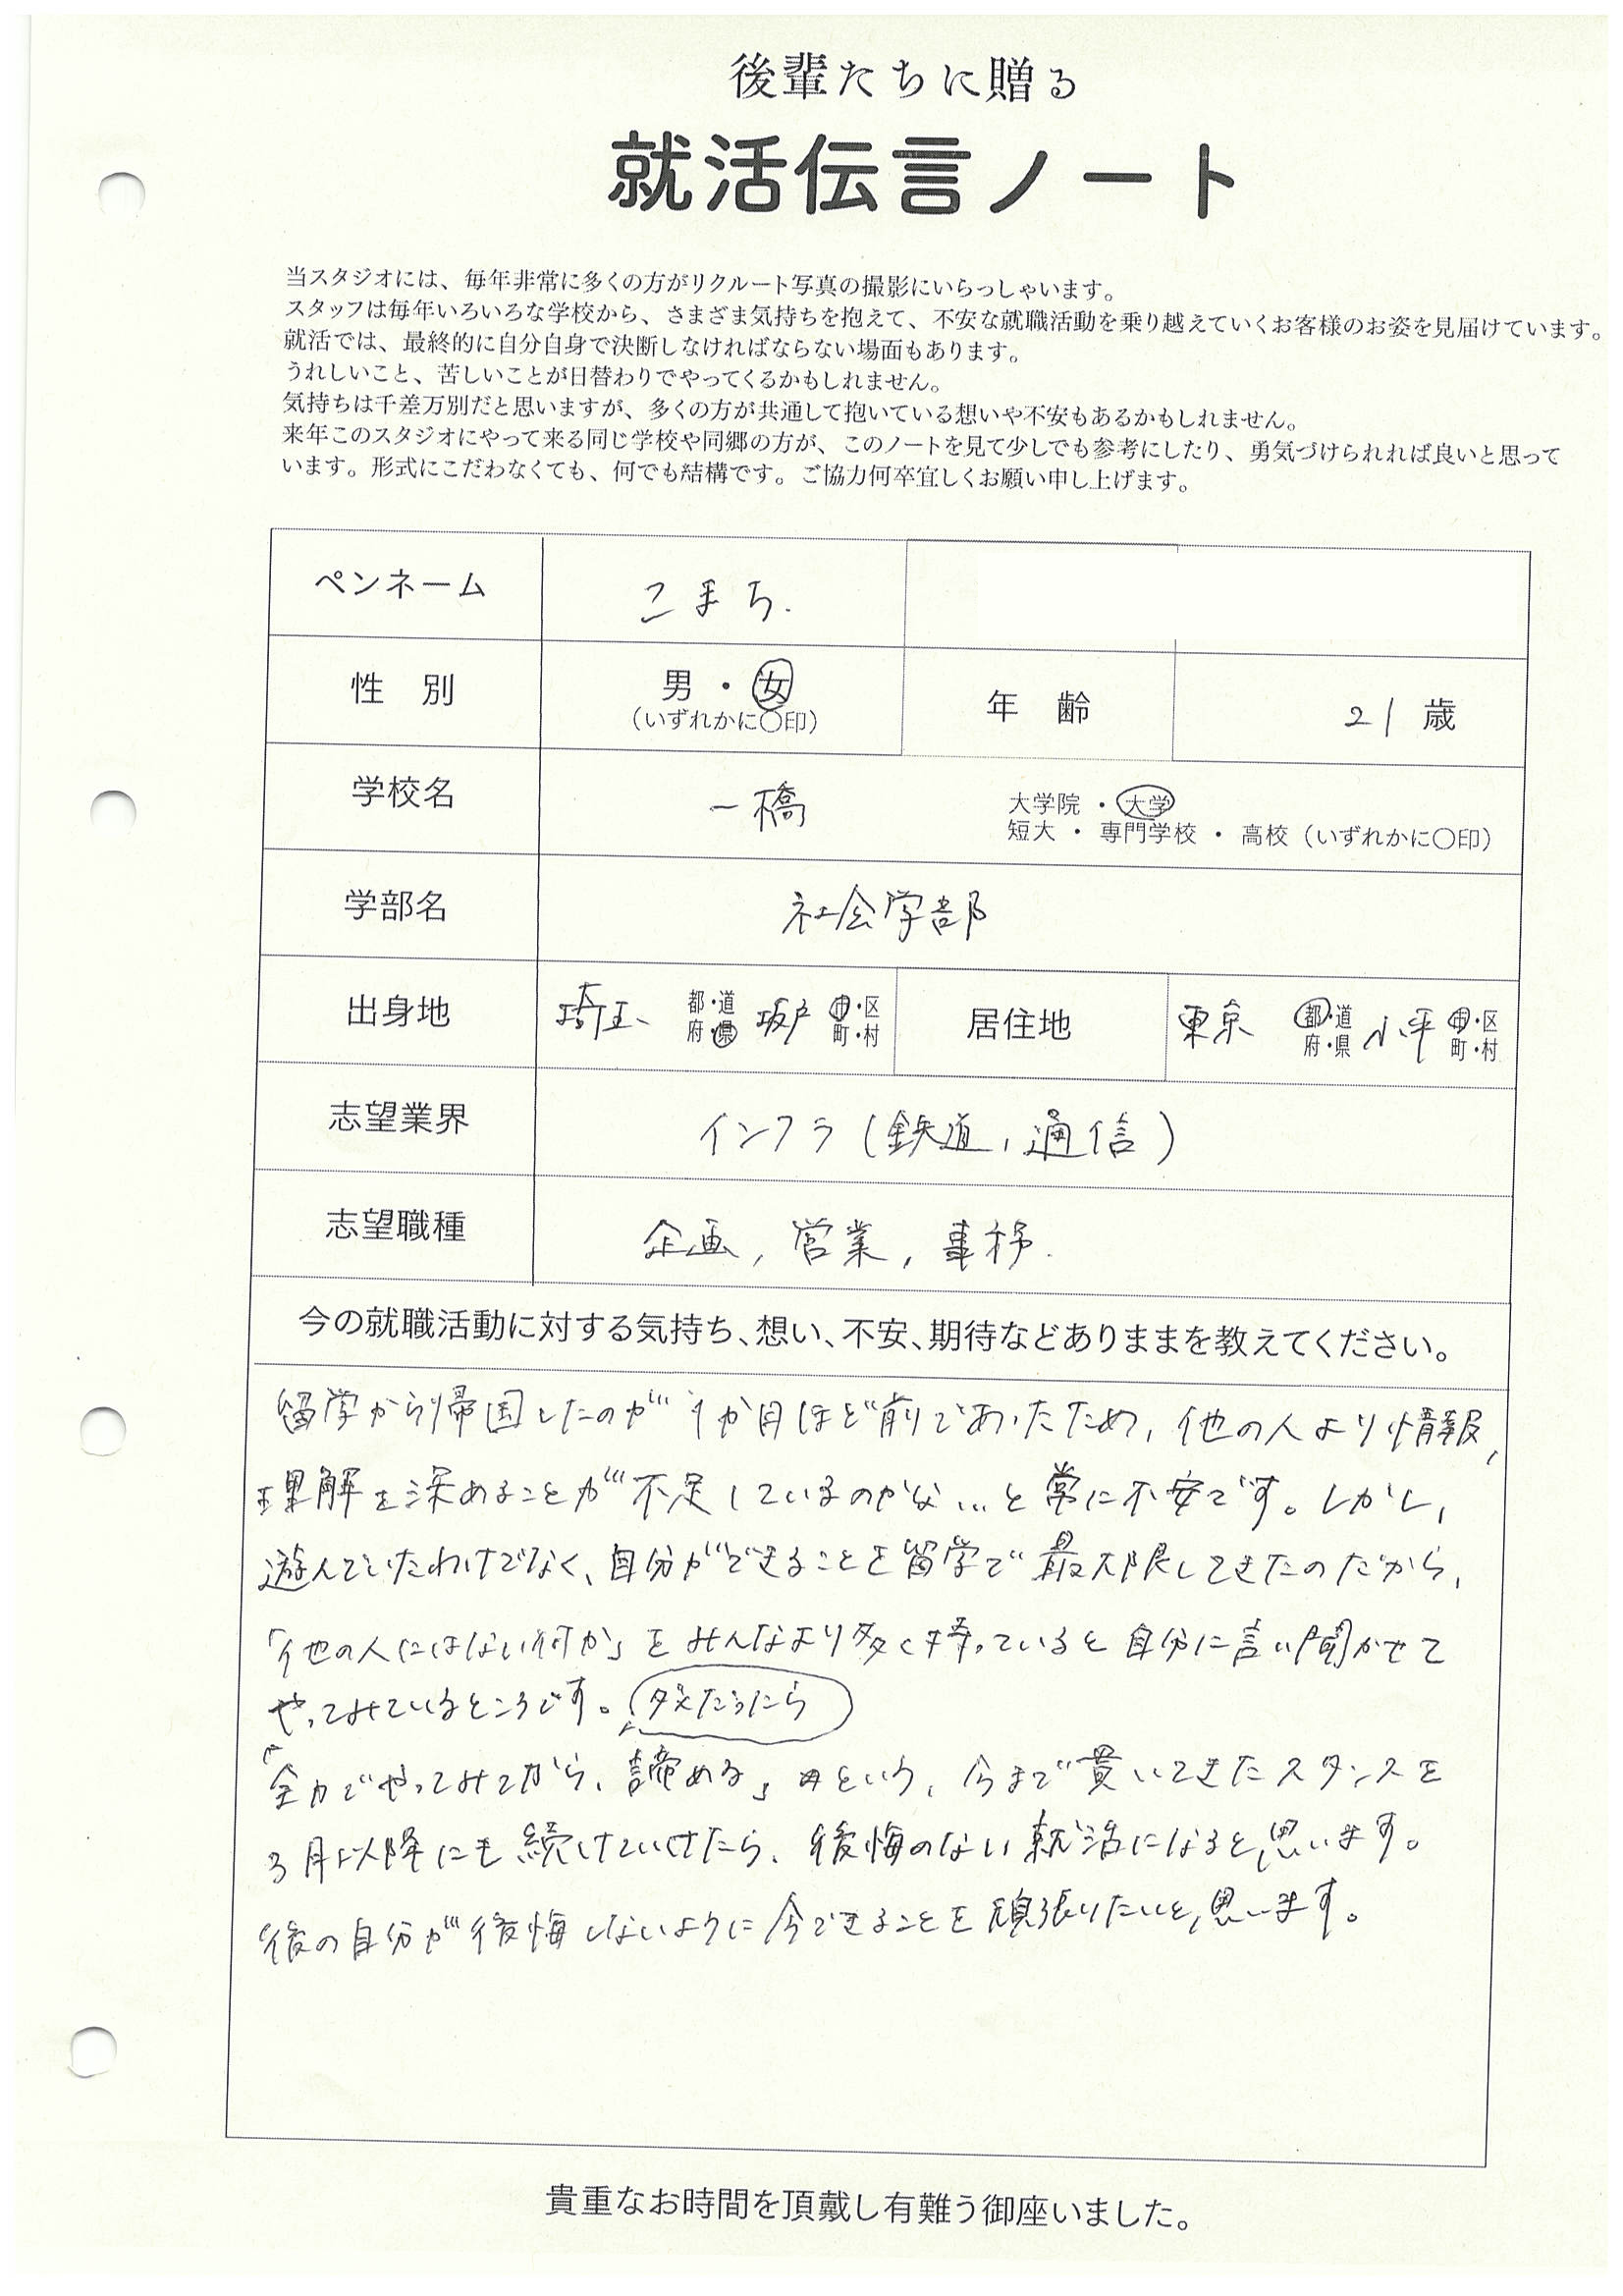 後輩たちに贈る
就活伝言ノート
当スタジオには、毎年非常に多くの方がリクルート写真の撮影にいらっしゃいます。
スタッフは毎年いろいろな学校から、さまざま気持ちを抱えて、不安な就職活動を乗り越えていくお客様のお姿を見届けています。
就活では、最終的に自分自身で決断しなければならない場面もあります。
うれしいこと、苦しいことが日替わりでやってくるかもしれません。
気持ちは千差万別だと思いますが、多くの方が共通して抱いている想いや不安もあるかもしれません。
来年このスタジオにやって来る同じ学校や同郷の方が、このノートを見て少しでも参考にしたり、勇気づけられれば良いと思って
います。形式にこだわなくても、何でも結構です。ご協力何卒宜しくお願い申し上げます。
ペンネーム こまち.
性 別 男 ・ 女 (いずれかに〇印) 年 齢 21 歳
学校名 一橋 大学院 ・ 大学
短大 ・ 専門学校 ・ 高校 (いずれかに〇印)
学部名 社会学部
出身地 埼玉 都・道 府・県 坂戸 市・区 町・村 居住地 東京 都・道 府・県 小平 市・区 町・村
志望業界 インフラ (鉄道, 通信)
志望職種 企画, 営業, 事務.
今の就職活動に対する気持ち、想い、不安、期待などありままを教えてください。
留学から帰国したのが1か月ほど前であったため, 他の人より情報,
理解を深めることが不足しているのかな...と常に不安です。しかし,
遊んでいたわけでなく、自分ができることを留学で最大限してきたのだから,
「他の人にはない何か」をみんなより多く持っていると自分に言い聞かせて
やってみているところです。 ダメだったら
「全力でやってみてから、諦める」という、今まで貫いてきたスタンスを
3月以降にも続けていけたら、後悔のない就活になると思います。
後の自分が後悔しないように今できることを頑張りたいと思います。
貴重なお時間を頂戴し有難う御座いました。